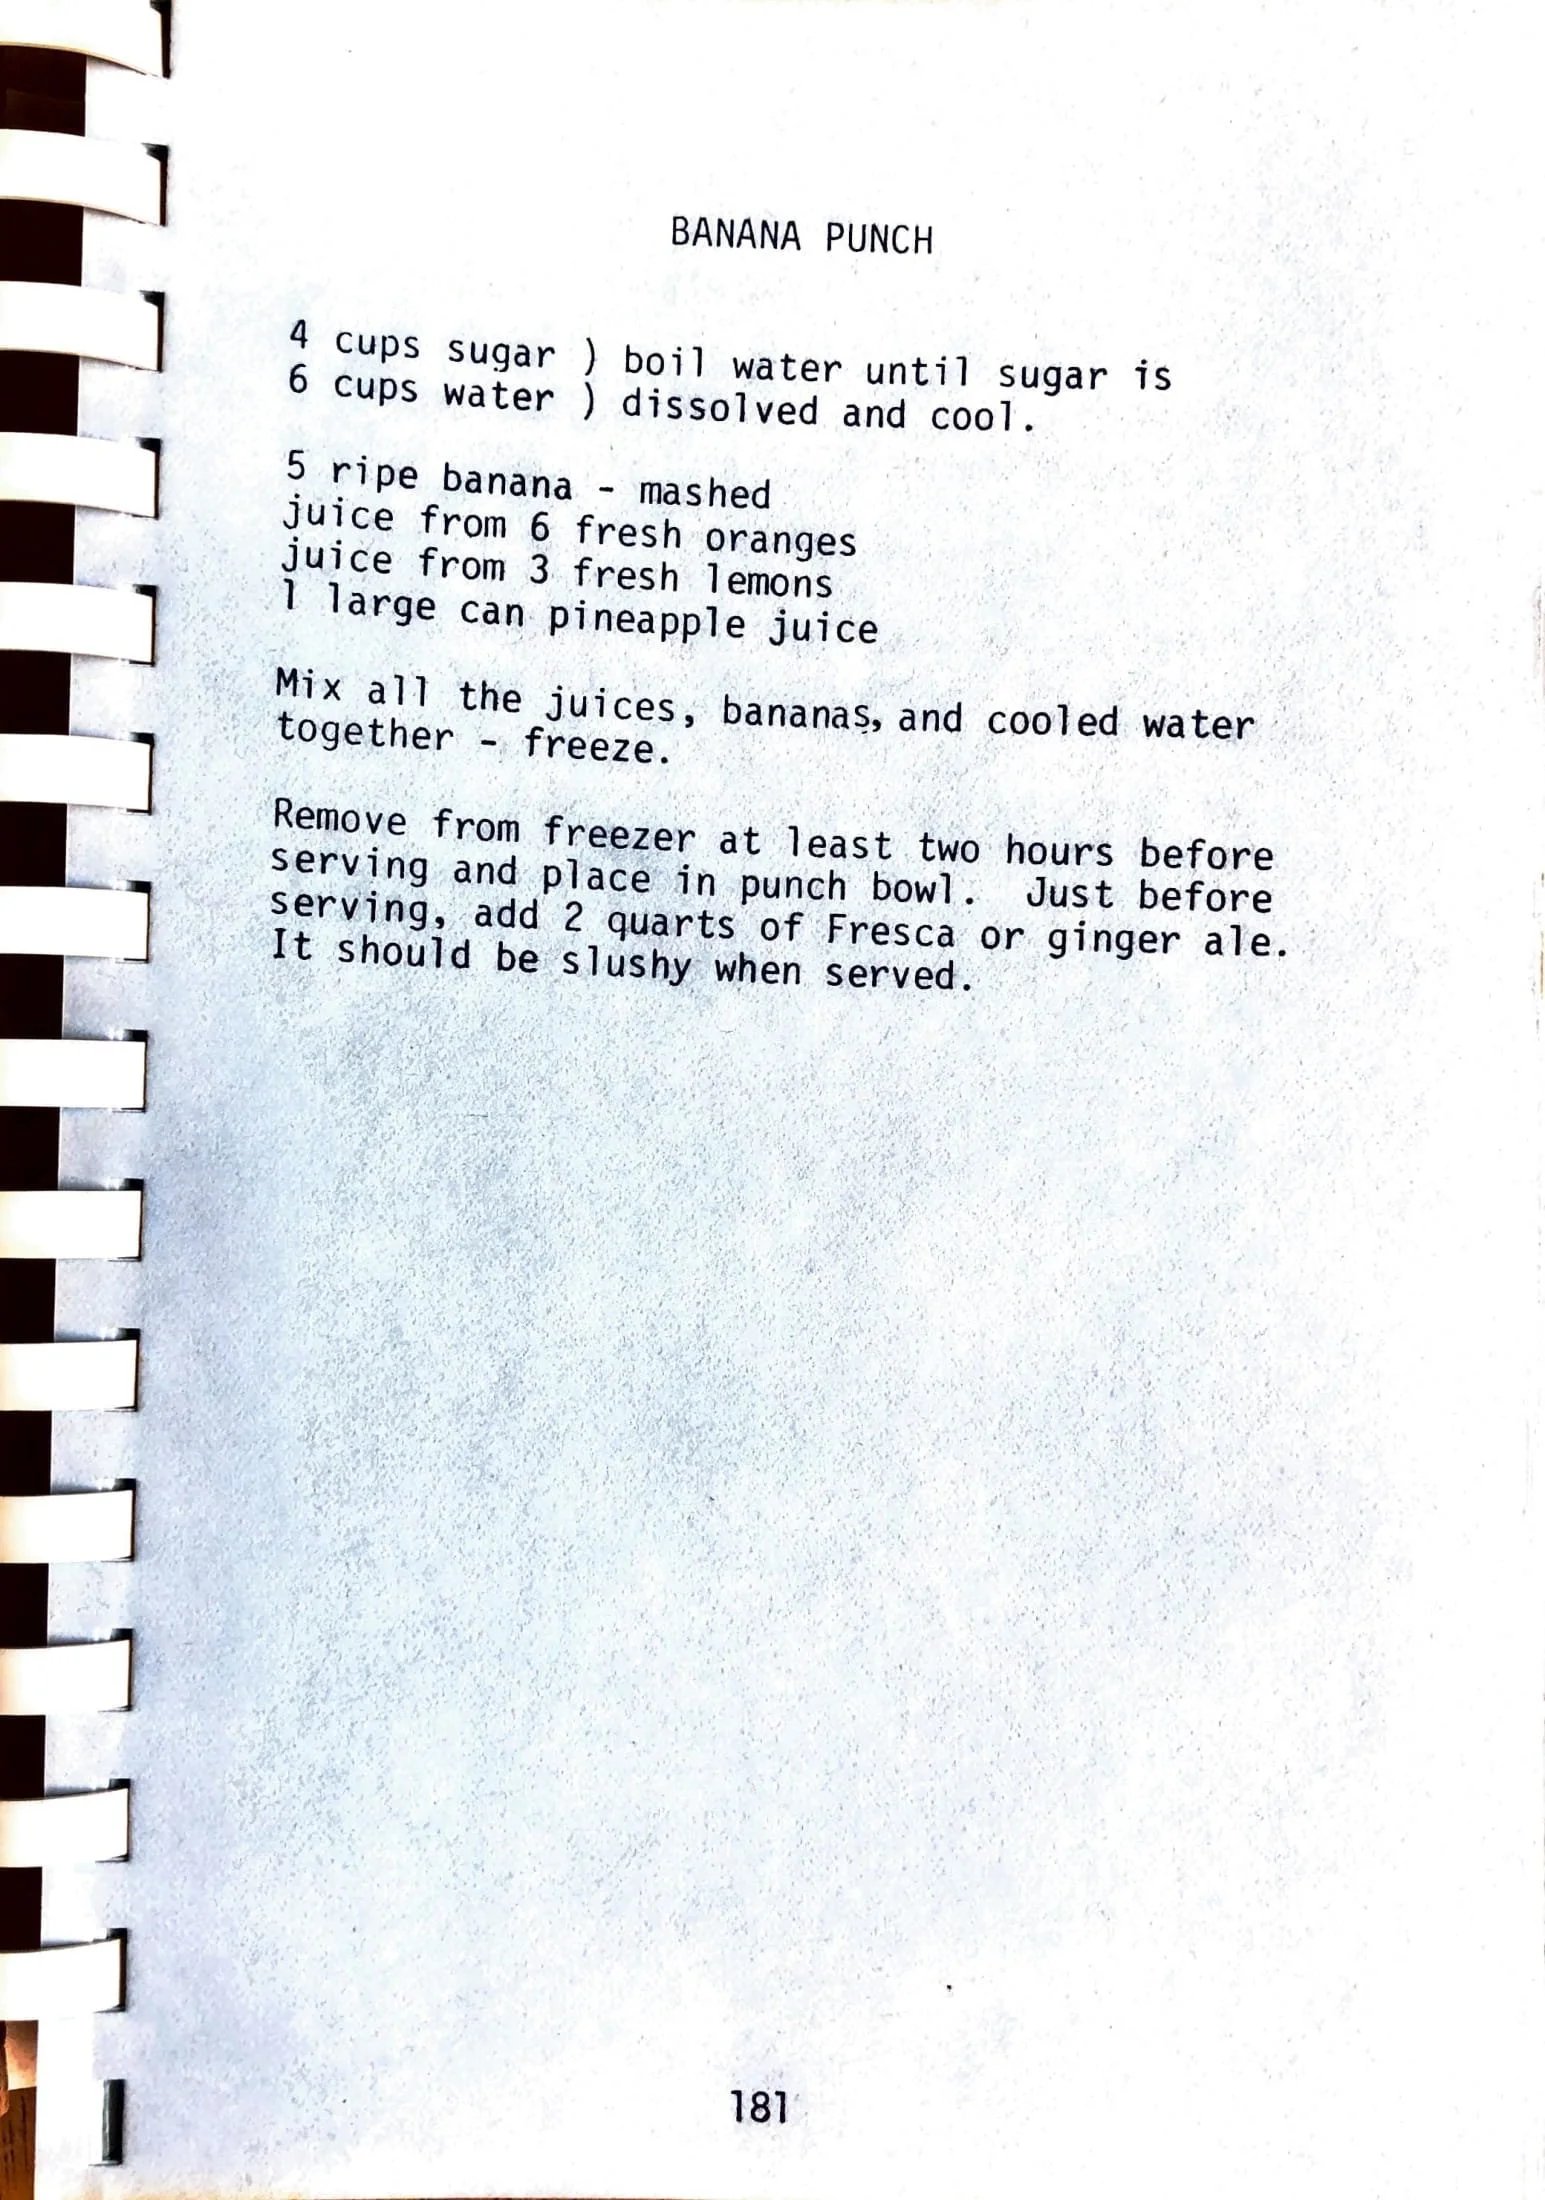 BANANA PUNCH
4 cups sugar ) boil water until sugar is
6 cups water ) dissolved and cool.
5 ripe banana - mashed
juice from 6 fresh oranges
juice from 3 fresh lemons
1 large can pineapple juice
Mix all the juices, bananas, and cooled water
together - freeze.
Remove from freezer at least two hours before
serving and place in punch bowl. Just before
serving, add 2 quarts of Fresca or ginger ale.
It should be slushy when served.
181